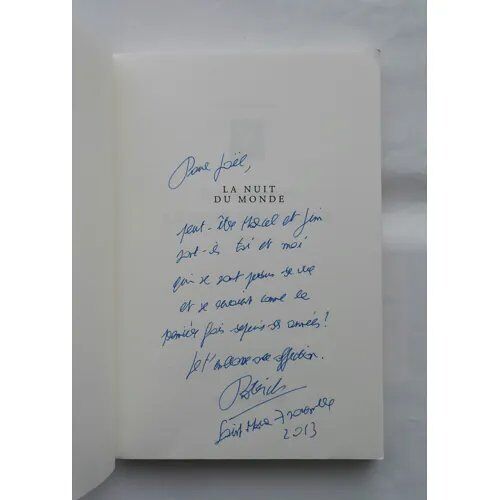 Pour Joël,
LA NUIT
DU MONDE
peut-être Marcel et Jim
sont-ils toi et moi
qui se sont perdus de vue
et se revoient comme la
première fois depuis des années !
Je t'embrasse avec affection.
Patrick
Saint Maur
2013